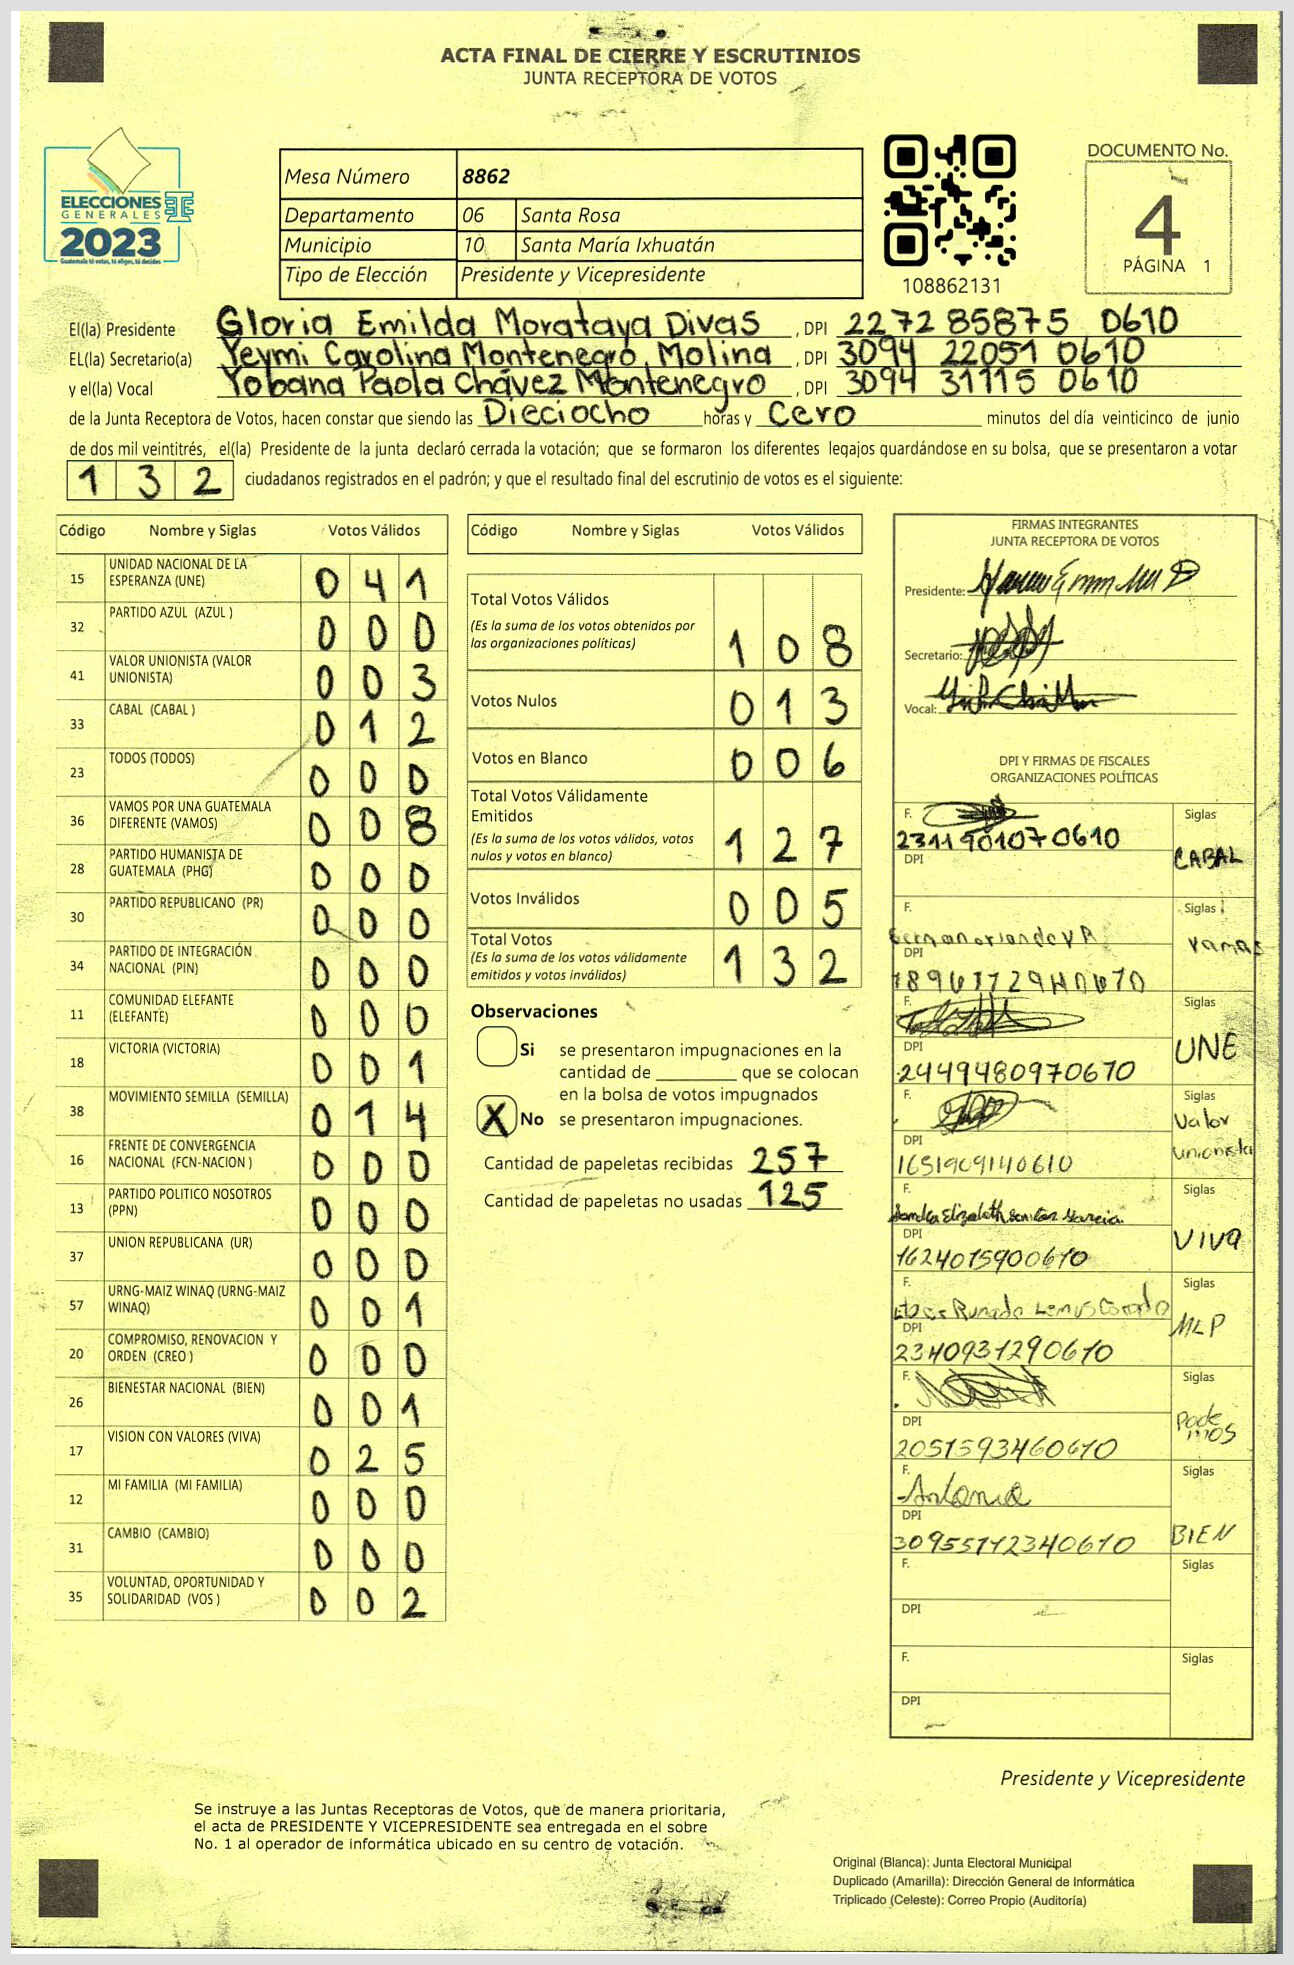 ACTA FINAL DE CIERRE Y ESCRUTINIOS
JUNTA RECEPTORA DE VOTOS
ELECCIONES
GENERALES
2023
Guatemala tú votas, tú eliges, tú decides
Mesa Número 8862
Departamento 06 Santa Rosa
Municipio 10 Santa María Ixhuatán
Tipo de Elección Presidente y Vicepresidente
108862131
DOCUMENTO No.
4
PÁGINA 1
El(la) Presidente Gloria Emilda Morataya Divas , DPI 2272 85875 0610
EL(la) Secretario(a) Yeymi Carolina Montenegro Molina , DPI 3094 22051 0610
y el(la) Vocal Yobana Paola Chávez Montenegro , DPI 3094 31115 0610
de la Junta Receptora de Votos, hacen constar que siendo las Dieciocho horas y Cero minutos del día veinticinco de junio
de dos mil veintitrés, el(la) Presidente de la junta declaró cerrada la votación; que se formaron los diferentes legajos quardándose en su bolsa, que se presentaron a votar
132 ciudadanos registrados en el padrón; y que el resultado final del escrutinio de votos es el siguiente:
Código Nombre y Siglas Votos Válidos
15 UNIDAD NACIONAL DE LA ESPERANZA (UNE) 041
32 PARTIDO AZUL (AZUL ) 000
41 VALOR UNIONISTA (VALOR UNIONISTA) 003
33 CABAL (CABAL ) 012
23 TODOS (TODOS) 000
36 VAMOS POR UNA GUATEMALA DIFERENTE (VAMOS) 008
28 PARTIDO HUMANISTA DE GUATEMALA (PHG) 000
30 PARTIDO REPUBLICANO (PR) 000
34 PARTIDO DE INTEGRACIÓN NACIONAL (PIN) 000
11 COMUNIDAD ELEFANTE (ELEFANTE) 000
18 VICTORIA (VICTORIA) 001
38 MOVIMIENTO SEMILLA (SEMILLA) 014
16 FRENTE DE CONVERGENCIA NACIONAL (FCN-NACION ) 000
13 PARTIDO POLITICO NOSOTROS (PPN) 000
37 UNION REPUBLICANA (UR) 000
57 URNG-MAIZ WINAQ (URNG-MAIZ WINAQ) 001
20 COMPROMISO, RENOVACION Y ORDEN (CREO ) 000
26 BIENESTAR NACIONAL (BIEN) 001
17 VISION CON VALORES (VIVA) 025
12 MI FAMILIA (MI FAMILIA) 000
31 CAMBIO (CAMBIO) 000
35 VOLUNTAD, OPORTUNIDAD Y SOLIDARIDAD (VOS ) 002
Código Nombre y Siglas Votos Válidos
Total Votos Válidos 108
(Es la suma de los votos obtenidos por
las organizaciones políticas)
Votos Nulos 013
Votos en Blanco 006
Total Votos Válidamente
Emitidos 127
(Es la suma de los votos válidos, votos
nulos y votos en blanco)
Votos Inválidos 005
Total Votos 132
(Es la suma de los votos válidamente
emitidos y votos inválidos)
Observaciones
Si se presentaron impugnaciones en la
cantidad de ________ que se colocan
en la bolsa de votos impugnados
X No se presentaron impugnaciones.
Cantidad de papeletas recibidas 257
Cantidad de papeletas no usadas 125
FIRMAS INTEGRANTES
JUNTA RECEPTORA DE VOTOS
Presidente:
Secretario:
Vocal:
DPI Y FIRMAS DE FISCALES
ORGANIZACIONES POLÍTICAS
F. Siglas
2311901070610
DPI CABAL
F. Siglas
DPI Vamos
F. Siglas
DPI UNE
2449480970610
F. Siglas
Valor
DPI Unionista
1651909140610
F. Siglas
Sandra Elizabeth
DPI VIVA
1624015900610
F. Siglas
DPI MLP
2340931290610
F. Siglas
DPI Pode
mos
2051593460610
F. Siglas
Antonia
DPI BIEN
30955112340610
F. Siglas
DPI
F. Siglas
DPI
Presidente y Vicepresidente
Se instruye a las Juntas Receptoras de Votos, que de manera prioritaria,
el acta de PRESIDENTE Y VICEPRESIDENTE sea entregada en el sobre
No. 1 al operador de informática ubicado en su centro de votación.
Original (Blanca): Junta Electoral Municipal
Duplicado (Amarilla): Dirección General de Informática
Triplicado (Celeste): Correo Propio (Auditoría)